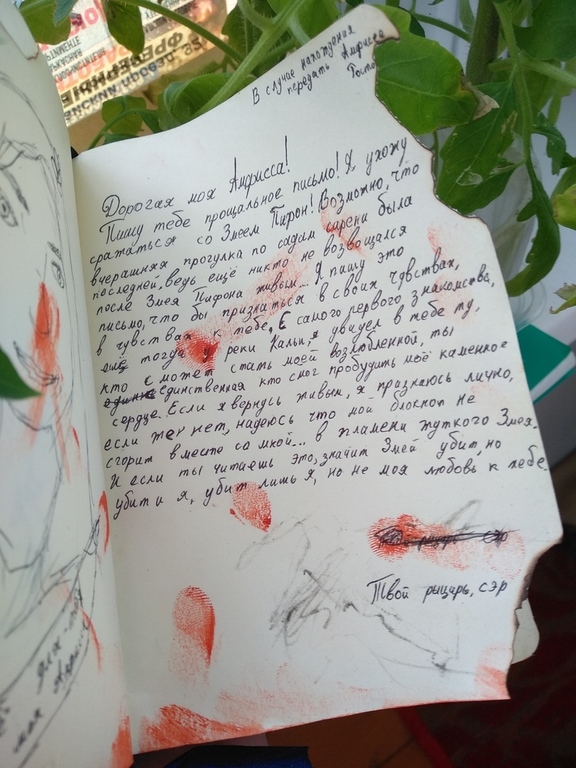 В случае нахождения
передать Андрисса
Дорогая моя Андрисса!
Пишу тебе прощальное письмо! Я, ухожу
сражаться со Змеем Пирон! Возможно, что
вчерашняя прогулка по садам сирени была
последней, ведь ещё никто не возвощался
после Змея Пифона живым... Я пишу это
письмо, что бы признаться в своих чувствах,
в чувствах к тебе, С самого первого знакомства,
ещё тогда у реки Кальи, я увидел в тебе ту,
кто сможет стать моей возлюбленной, ты
единственная кто смог пробудить моё каменное
сердце. Если я вернусь живым, я признаюсь лично,
если же нет, надеюсь что мой блокнот не
сгорит вместе со мной... в пламени жуткого Змея.
И если ты читаешь это, значит Змей убит, но
убит и я, убит лишь я, но не моя любовь к тебе.
сэр
Твой рыцарь, сэр
для
моя